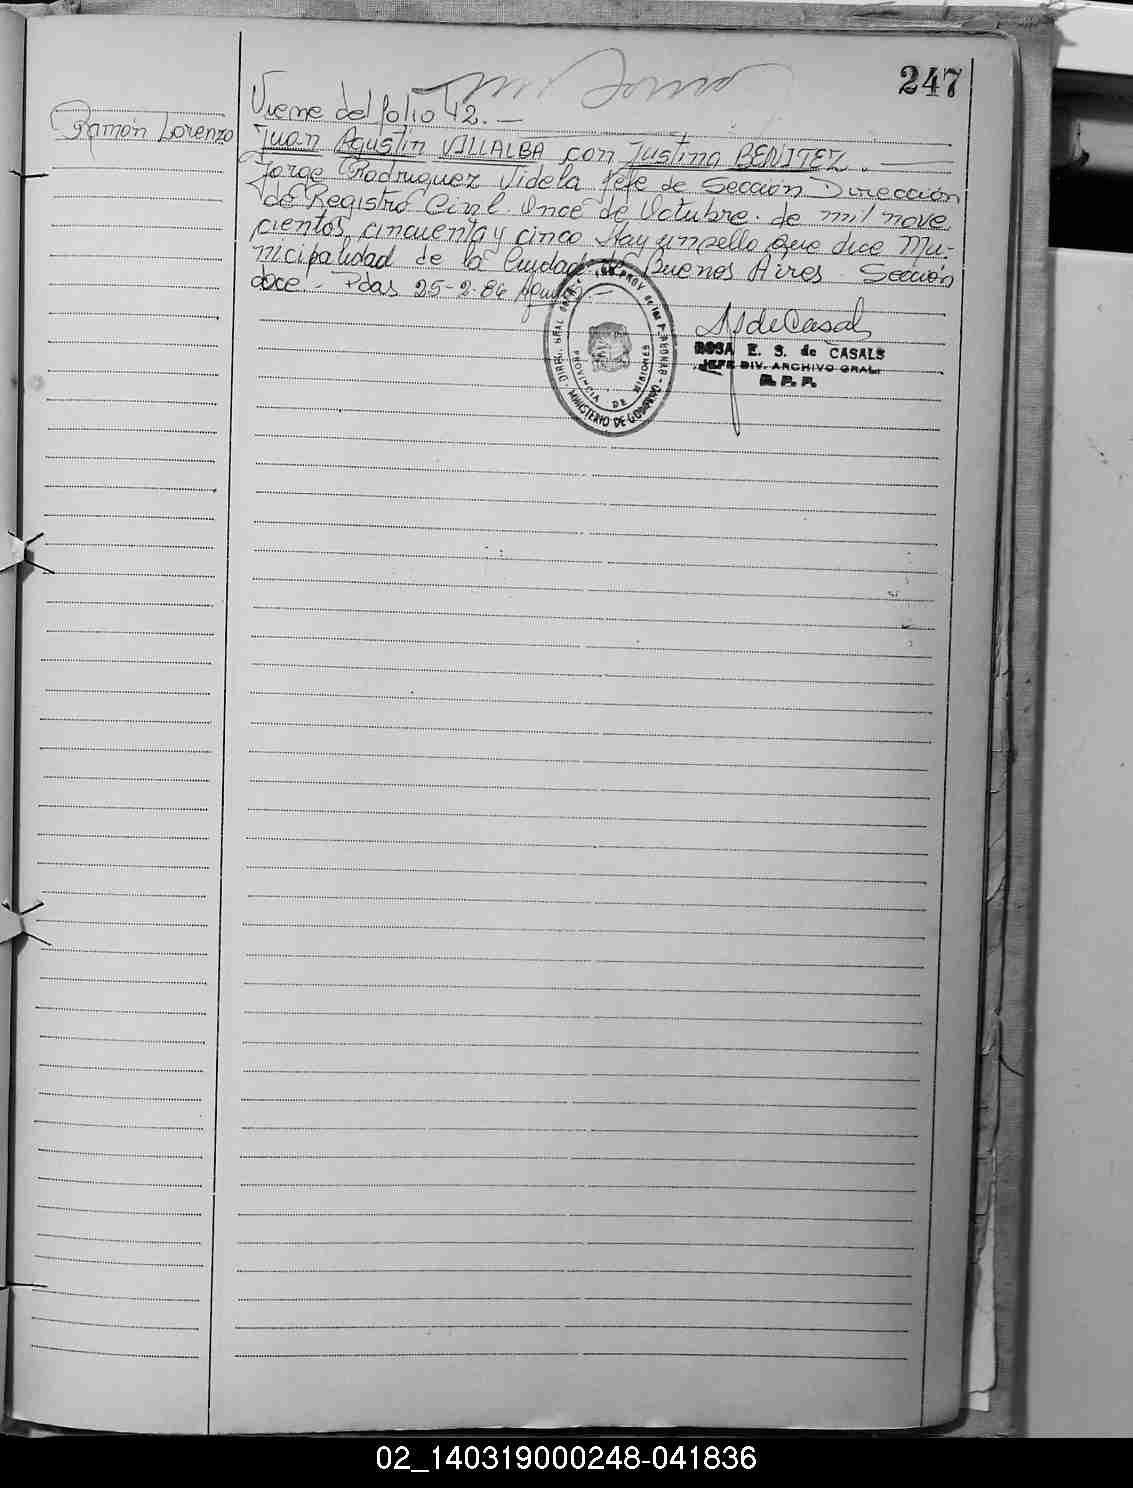 247
Viene del folio 42. —
Ramón Lorenzo
Juan Agustin VILLALBA con Justina BENITEZ. —
Jorge Rodriguez Videla Jefe de Sección Dirección
do Registro Civil. Once de Octubre. de mil nove
cientos, cincuenta y cinco Hay un sello que dice Mu-
nicipalidad de la Ciudad de Buenos Aires. Sección
doce. - Pdas 25-2-86
ROSA E. S. de CASALS
JEFE DIV. ARCHIVO GRAL.
R. P. P.
PROV. de las PERSONAS
PROVINCIA DE MISIONES
MINISTERIO DE GOBIERNO
02_140319000248-041836